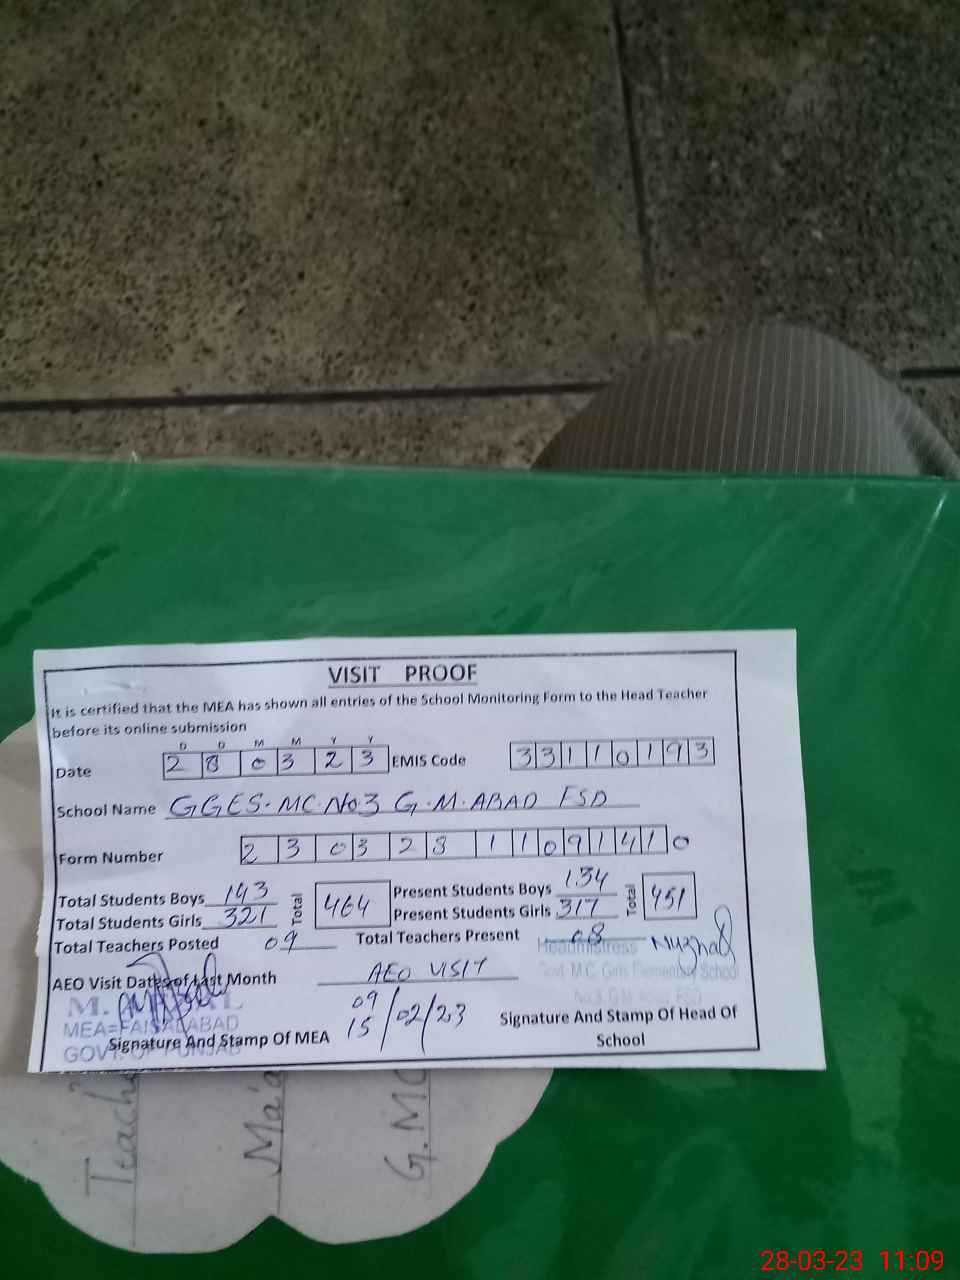 VISIT PROOF
It is certified that the MEA has shown all entries of the School Monitoring Form to the Head Teacher
before its online submission
D D M M Y Y
Date 2 8 0 3 2 3 EMIS Code 3 3 1 1 0 1 9 3
School Name GGES. MC. No. 3 G. M. ABAD FSD
Form Number 2 3 0 3 2 8 1 1 0 9 1 4 1 0
Total Students Boys 143 Total 464 Present Students Boys 134 Total 451
Total Students Girls 321 Present Students Girls 317
Total Teachers Posted 09 Total Teachers Present 08
Headmistress
Govt. M.C. Girls Elementary School
AEO Visit Dates of Last Month AEO VISIT
No.3 G.M. FSD
M.
MEA=FAISALABAD
GOVT. OF PUNJAB
09
15 /02/23
Signature And Stamp Of MEA
Signature And Stamp Of Head Of
School
Teach
Ma'a
G.MC
28-03-23 11:09